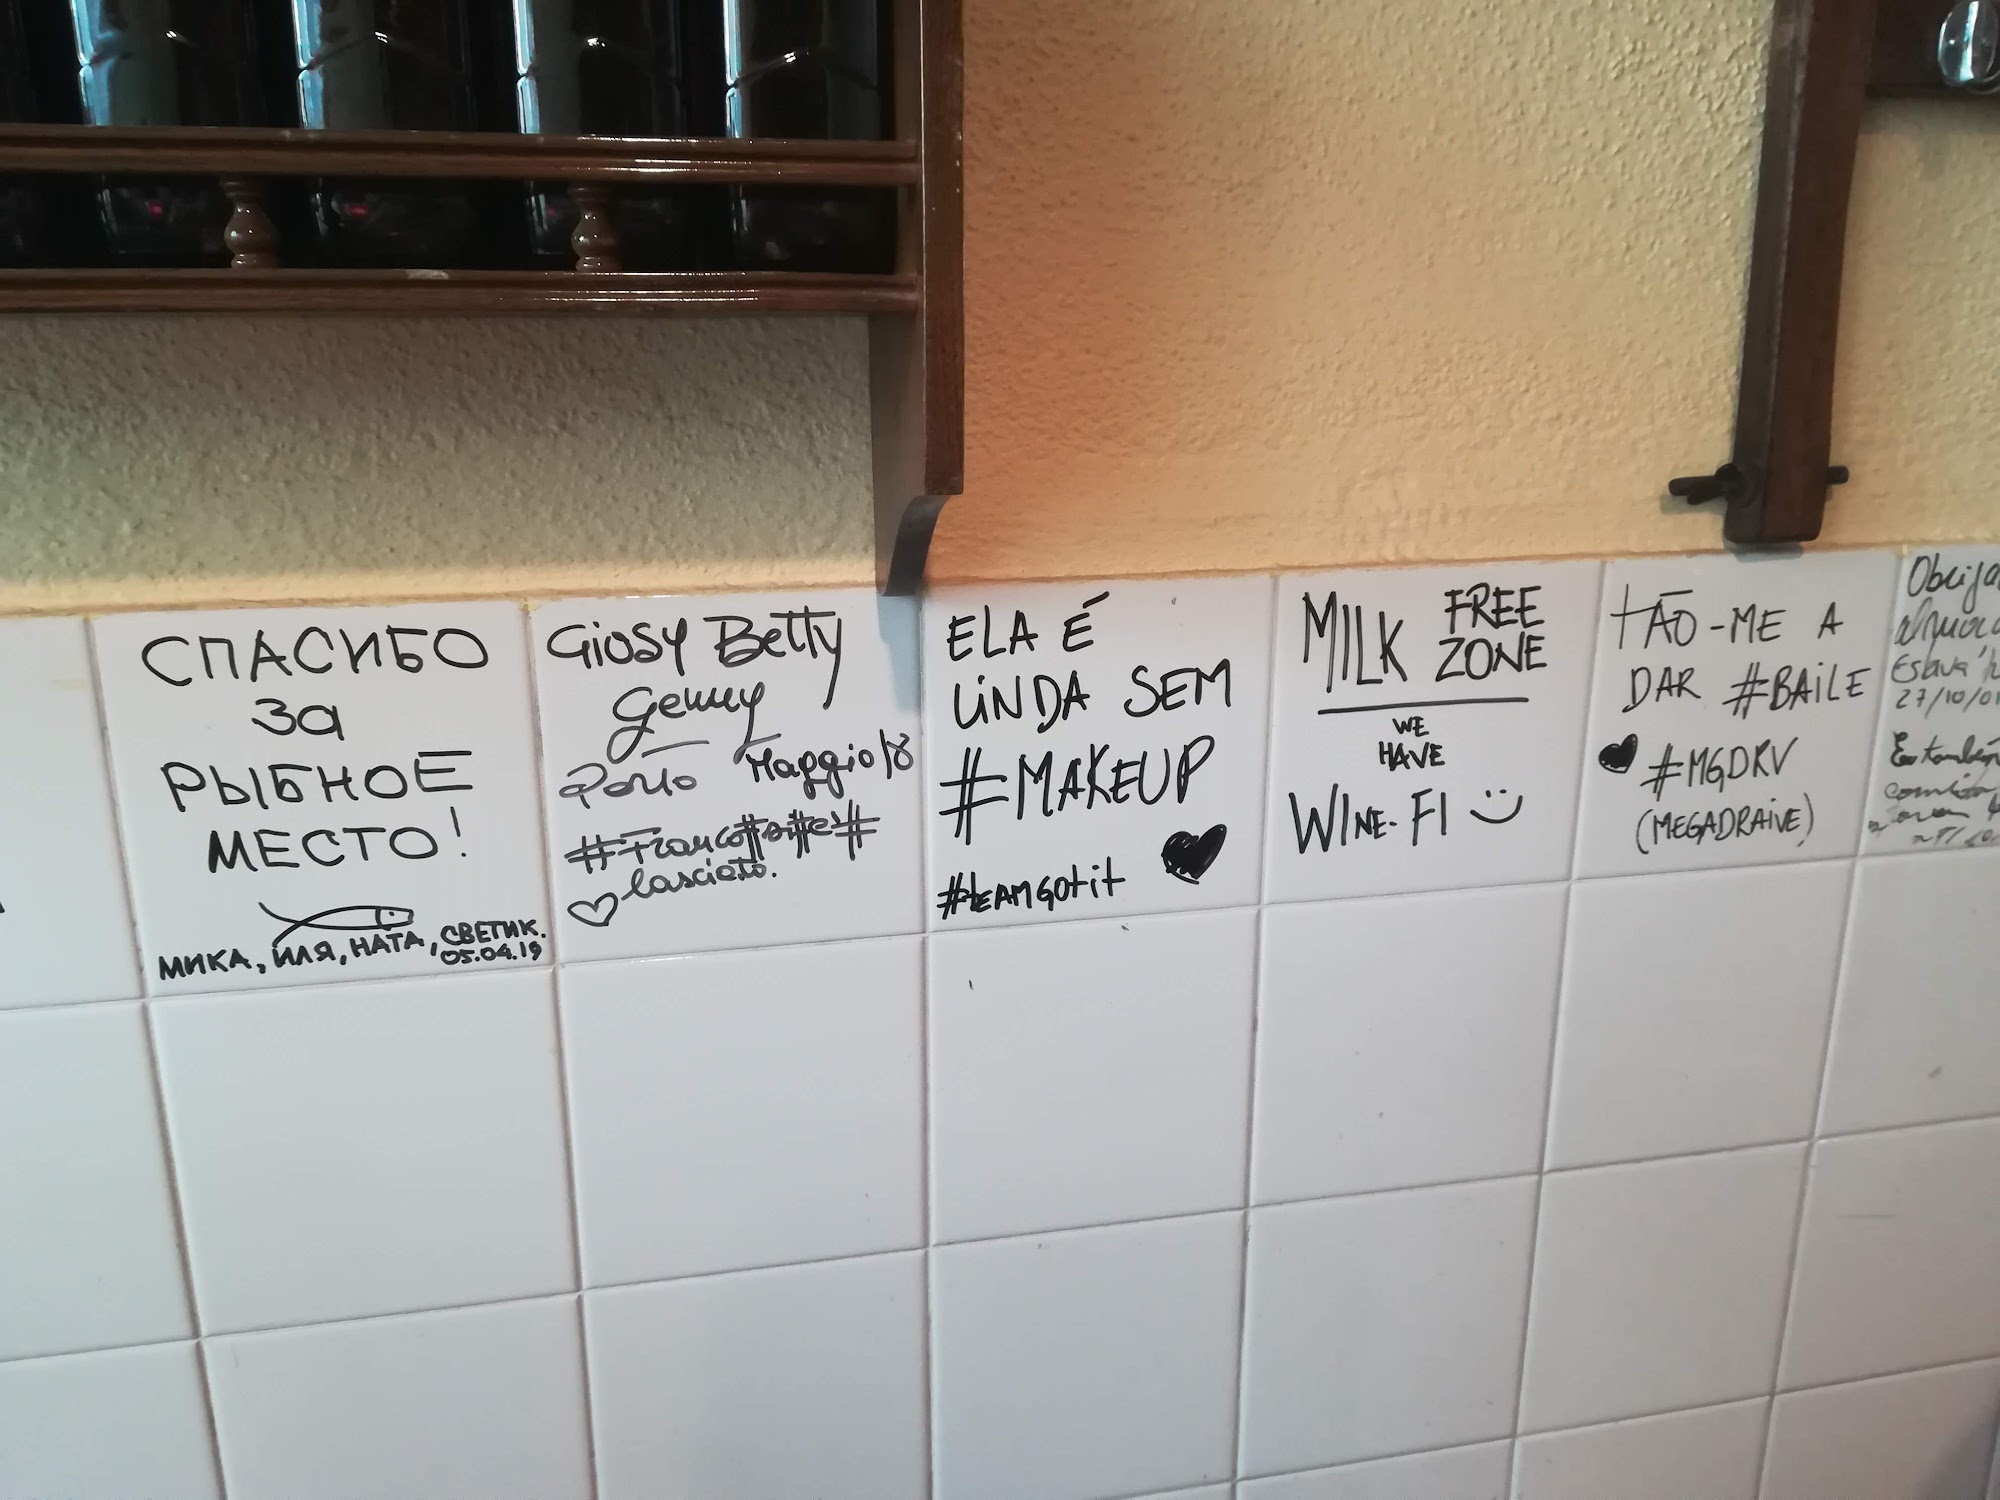 СПАСИБО
ЗА
РЫБНОЕ
МЕСТО!
МИКА, ИЛЯ, НАТА, СВЕТИК.
05.04.19
Giosy Betty
Genny
Porto Maggio 18
lasciato.
ELA É
LINDA SEM
#MAKEUP
#tEAMGOtit
MILK FREE
ZONE
WE
HAVE
WINE-FI
TÃO-ME A
DAR #BAILE
#MGDRV
(MEGADRAIVE)
27/10/01